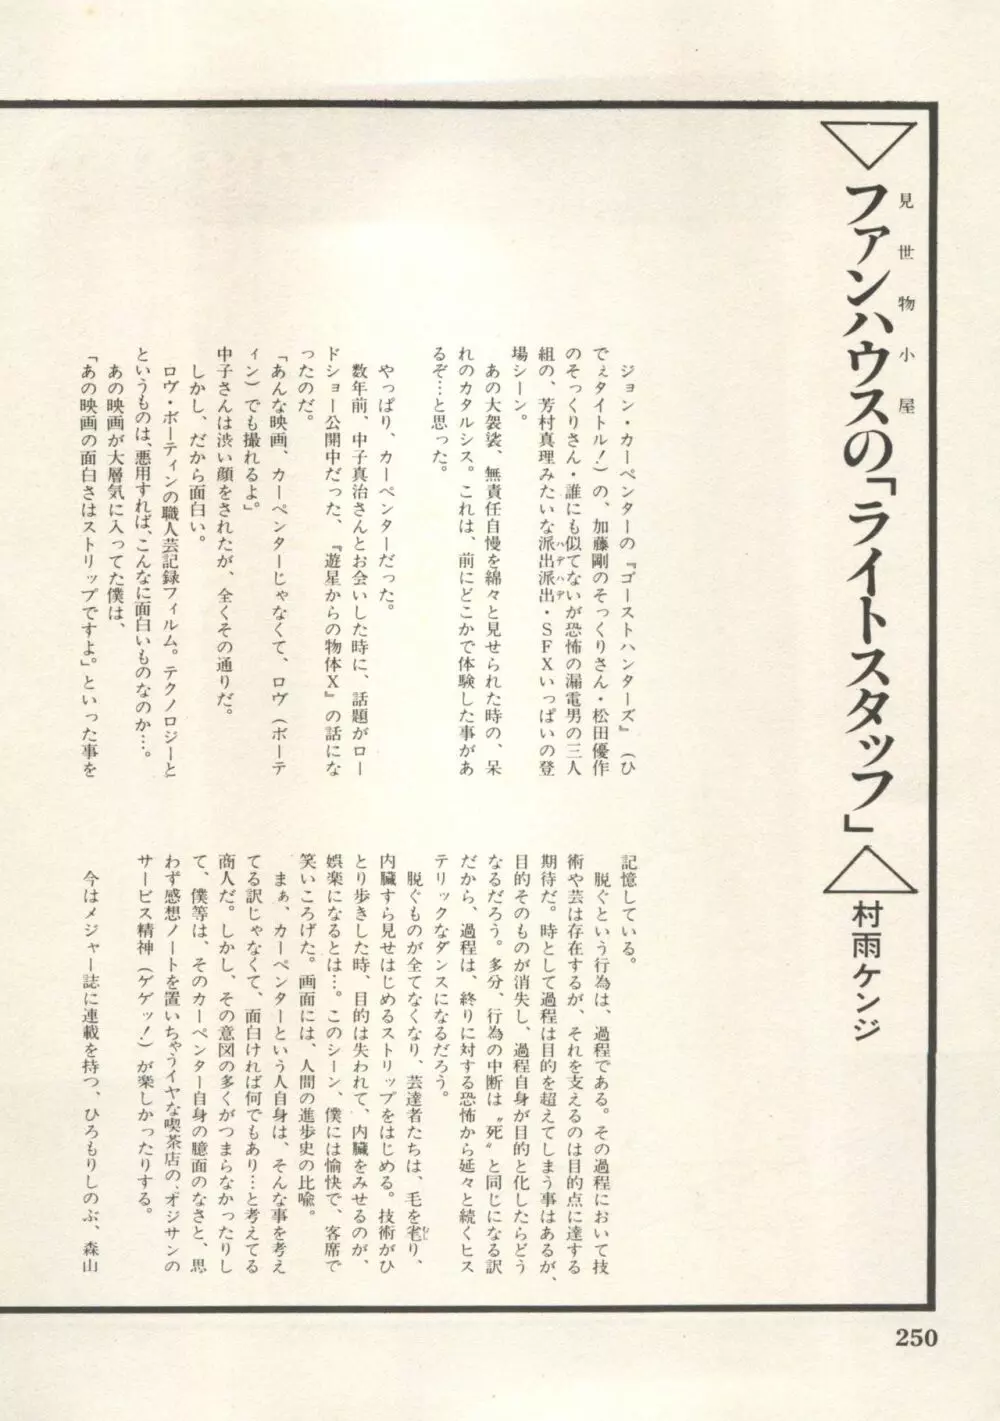 見世物小屋
ファンハウスの「ライトスタッフ」
村雨ケンジ
ジョン・カーペンターの『ゴーストハンターズ』(ひ
でぇタイトル!)の、加藤剛のそっくりさん・松田優作
のそっくりさん・誰にも似てないが恐怖の漏電男の三人
組の、芳村真理みたいな派出派出・SFXいっぱいの登
ハデハデ
場シーン。
あの大袈裟、無責任自慢を綿々と見せられた時の、呆
れのカタルシス。これは、前にどこかで体験した事があ
るぞ…と思った。
やっぱり、カーペンターだった。
数年前、中子真治さんとお会いした時に、話題がロー
ドショー公開中だった、『遊星からの物体X』の話にな
ったのだ。
「あんな映画、カーペンターじゃなくて、ロヴ(ボーテ
ィン)でも撮れるよ」。
中子さんは渋い顔をされたが、全くその通りだ。
しかし、だから面白い。
ロヴ・ボーティンの職人芸記録フィルム。テクノロジーと
というものは、悪用すれば、こんなに面白いものなのか…。
あの映画が大層気に入ってた僕は、
「あの映画の面白さはストリップですよ」。といった事を
記憶している。
脱ぐという行為は、過程である。その過程において技
術や芸は存在するが、それを支えるのは目的点に達する
期待だ。時として過程は目的を超えてしまう事はあるが、
目的そのものが消失し、過程自身が目的と化したらどう
なるだろう。多分、行為の中断は〝死〟と同じになる訳
だから、過程は、終りに対する恐怖から延々と続くヒス
テリックなダンスになるだろう。
脱ぐものが全てなくなり、芸達者たちは、毛を毟り、
内臓すら見せはじめるストリップをはじめる。技術がひ
とり歩きした時、目的は失われて、内臓をみせるのが、
娯楽になるとは…。このシーン、僕には愉快で、客席で
笑いころげた。画面には、人間の進歩史の比喩。
まぁ、カーペンターという人自身は、そんな事を考え
てる訳じゃなくて、面白ければ何でもあり…と考えてる
商人だ。しかし、その意図の多くがつまらなかったりし
て、僕等は、そのカーペンター自身の臆面のなさと、思
わず感想ノートを置いちゃうイヤな喫茶店の、オジサンの
サービス精神(ゲゲッ!)が楽しかったりする。
今はメジャー誌に連載を持つ、ひろもりしのぶ、森山
250